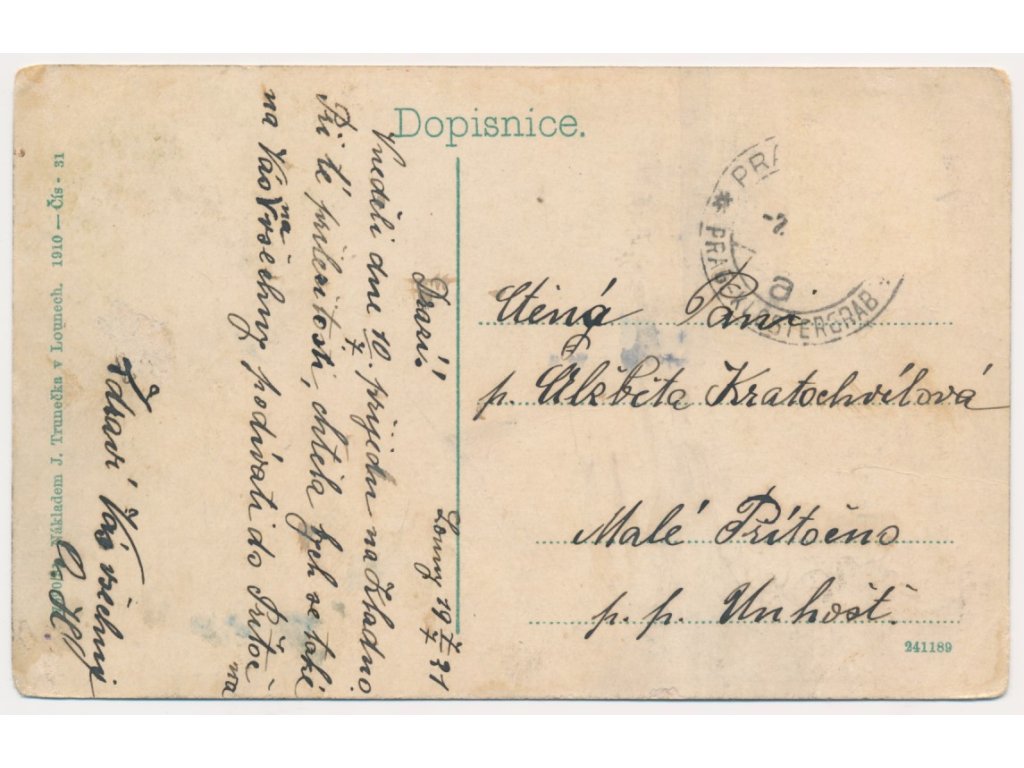 Dopisnice.
Drazí! Louny 19 7/V 21
V neděli dne 10./7. přijedu na Kladno
Při té příležitosti, chtěla bych se také
na Vás na Vršechny podívati do Přítoč
na
Zdraví Vás všechny
Nákladem J. Trunečka v Lounech. 1910 — Čís. 31
PRA
-2
a
PRAGER
STERGRAB
Ctěná Paní
p. Alžběta Kratochvílová
Malé Přítočno
p. p. Unhošť.
241189